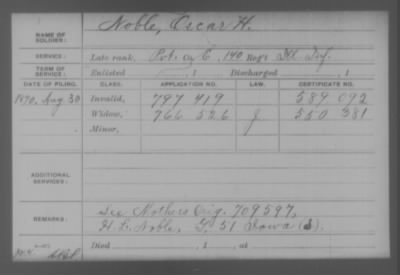 NAME OF SOLDIER: Noble, Oscar H.
SERVICE: Late rank, Pvt. Co C, 140 Reg't Ill. Inf.
TERM OF SERVICE: Enlisted , 1 Discharged , 1
DATE OF FILING. CLASS. APPLICATION NO. LAW. CERTIFICATE NO.
1890, Aug. 30 Invalid, 797 419 589 092
Widow, 766 526 J 550 381
Minor,
ADDITIONAL SERVICES:
REMARKS: See Mothers Orig. 709597,
H. L. Noble, 51 Iowa
Died , 1 , at